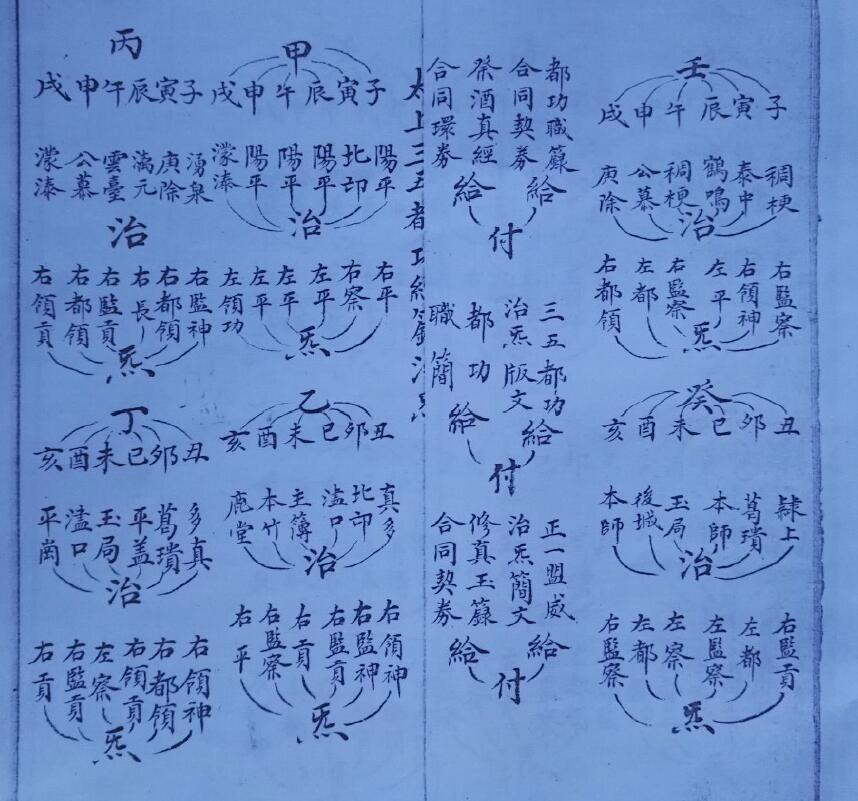 壬
子寅辰午申戌
稠梗
泰中
鶴鳴
稠梗
公慕
庚除
治
右監察
右領神
左平
右監察
左都
右都領
炁
癸
丑卯巳未酉亥
隸上
葛璝
本師
玉局
後城
本師
治
右監貢
左都
左監察
左察
左都
右監察
炁
都功職籙
合同契券
祭酒真經
合同環券
給
給
付
三五都功
治炁版文
都功
職簡
給
給
付
正一盟威
治炁簡文
修真玉籙
合同契券
給
給
付
太上三五都功經籙治炁
甲
子寅辰午申戌
陽平
北卬
陽平
陽平
陽平
濛漆
治
右平
右察
左平
左平
左平
左領功
炁
乙
丑卯巳未酉亥
真多
北卬
濜口
主簿
本竹
鹿堂
治
右領神
右監神
右監貢
右貢
右監察
右平
炁
丙
子寅辰午申戌
湧泉
庚除
漓元
雲臺
公慕
濛漆
治
右監神
右都領
右長
右監貢
右都領
右領貢
炁
丁
丑卯巳未酉亥
多真
葛璝
平盖
玉局
濜口
平崗
治
右領神
右都領
右領貢
左察
右監貢
右貢
炁